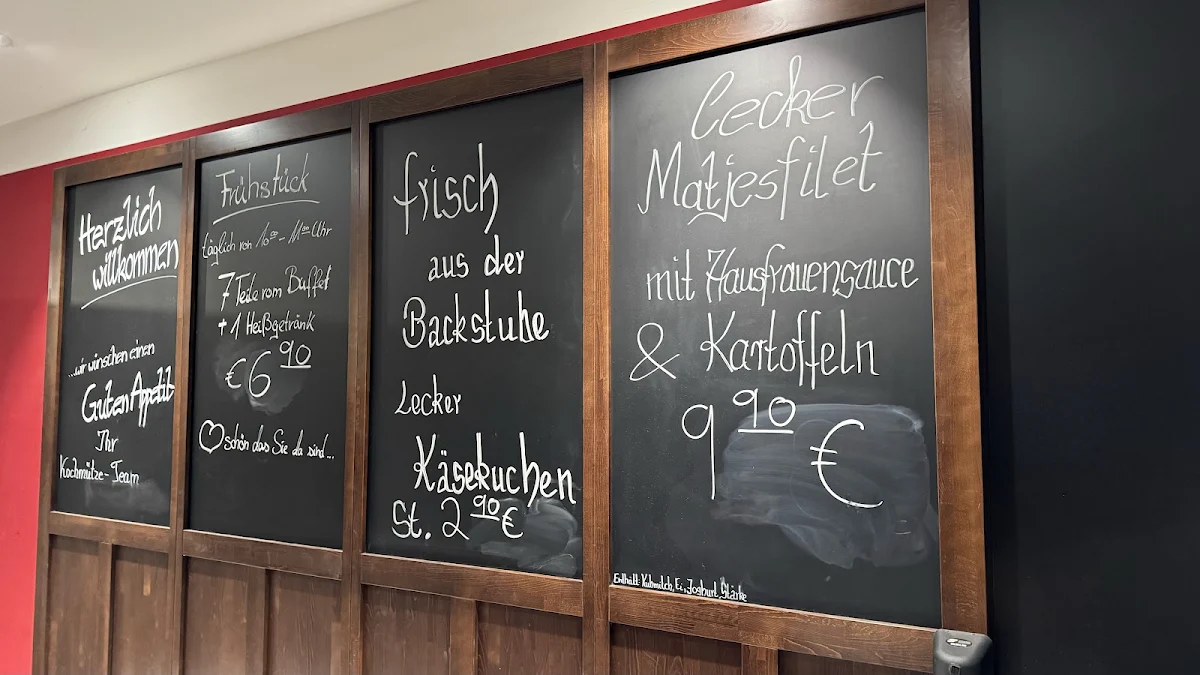 Herzlich
willkommen
...wir wünschen einen
Guten Appetit
Ihr
Kochmütze-Team
Frühstück
täglich von 10⁰⁰ - 11⁰⁰ Uhr
7 Teile vom Buffet
+ 1 Heißgetränk
€ 6 90
♡ schön das Sie da sind...
frisch
aus der
Backstube
Lecker
Käsekuchen
St. 2 90 €
Lecker
Matjesfilet
mit Hausfrauensauce
& Kartoffeln
9 90 €
Enthält: Kuhmilch, Ei, Joghurt, Stärke